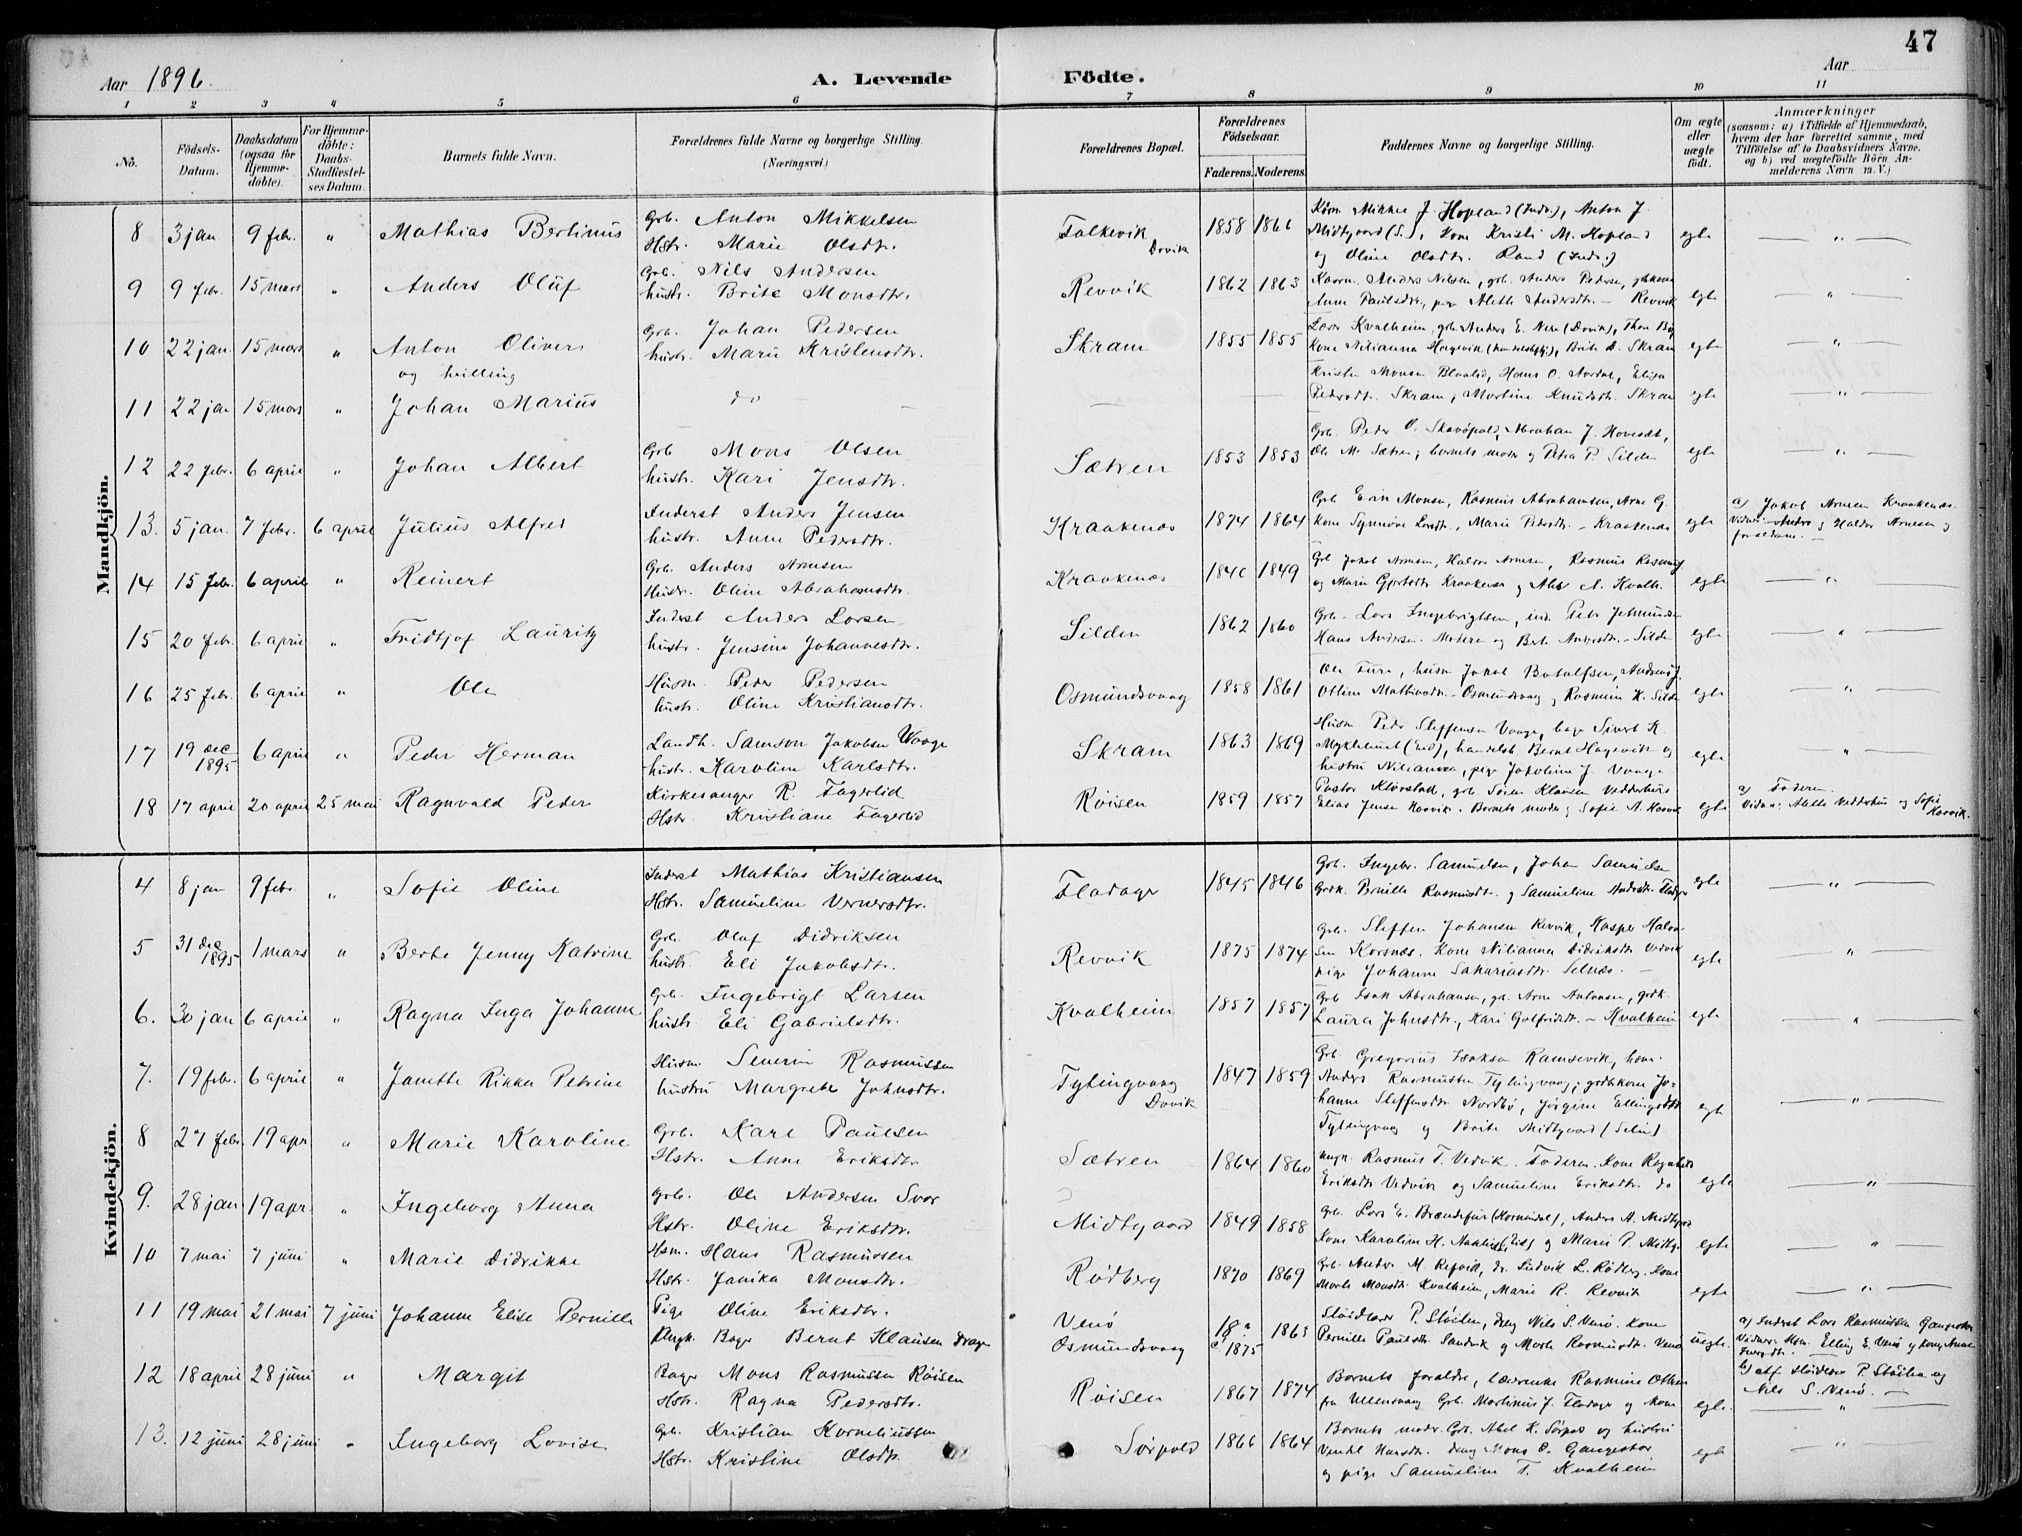 47
Aar 1896.
A. Levende Födte.
Aar
1 2 3 4 5 6 7 8 9 10 11
No.
Födsels-Datum.
Daabsdatum (ogsaa for Hjemme-döbte).
For Hjemme-döbte: Daabs-Stadfæstel-ses Datum.
Barnets fulde Navn.
Forældrenes fulde Navne og borgerlige Stilling. (Næringsvei.)
Forældrenes Bopæl.
Forældrenes Födselsaar.
Faderens. Moderens.
Faddernes Navne og borgerlige Stilling.
Om ægte eller uægte födt.
Anmærkninger
(saasom: a) i Tilfælde af Hjemmedaab, hvem der har forrettet samme, med Tilföielse af to Daabsvidners Navne, og b) ved uægtefödte Börn An-melderens Navn m. V.)
Mandkjön.
8 3 jan 9 febr. " Mathias Bertinus Grb. Anton Mikkelsen Hstr. Marie Olsdtr. Falkevik Dovik 1858 1866 Midtgaard (S.), Kone Kristi M. Hopland og Oline Olsdtr. Rand (Inds.) egte "
9 9 febr. 15 mars " Anders Oluf Grb. Nils Andersen hustr. Brite Monsdtr. Revvik 1862 1863 Anders Nilsen, grb. Anders Pedersen, Anne Paulsdtr, pige Aleth Andersdtr. - Revvik egte "
10 22 jan. 15 mars " Anton Oliver og tvilling Grb. Johan Pedersen hustr. Marie Kristensdtr. Skram 1855 1855 Lars Kvalheim, grb. Anders E. (Dovik), Kone Nilianna Hagevik, Brite D. Skram egte "
11 22 jan 15 mars " Johan Marius do — — — Kristen Monsen Blaalid, Hans O. Aardal, Elisa Pedersdtr. Skram, Martine Knudsdtr. Skram egte "
12 22 febr. 6 april " Johan Albert Grb Mons Olsen hustr. Kari Jensdtr. Sætren 1853 1853 Grb. Peder O. Ole M. Sætren; barnets moder og Petra P. Silden egte "
13. 5 jan. 7 febr. 6 april Julius Alfred Inderst Anders Jensen hustr. Anne Pedersdtr. Kraakenæs 1874 1864 Grb. Monsen, Rasmus Abrahamsen, Arne G. Marie Pedersdtr. - Kraakenæs egte a) Jakob Arnesen Kraakenæs. Vidner: Anders og Halvor Arnesen og forældrene.
14 15 febr. 6 april " Reinert Grb. Anders Arnesen Hustr. Oline Abrahamsdtr. Kraakenæs 1846 1849 Grb Jakob Arnesen, Halvor Arnesen, Rasmus Rasmus og Marie Kraakenæs og A. Kvalh. egte "
15 20 febr. 6 april " Fridtjof Lauritz Inderst Anders Larsen hustr. Jensine Johannesdtr. Silden 1862 1860 Grb. Lars Ingebrigtsen, Hans Andersen. og Berte Andersdtr. - Silden egte "
16 25 febr. 6 april " Ole Husm. Peder Pedersen hustr. Oline Kristiansdtr. Osmundsvaag 1858 1861 Ole Fure, husm Jakob Botolfsen, Ottine Mathiasdtr. - Osmundsvaag og Rasmine K. Silden egte "
17 19 dec 1895 6 april " Peder Herman Landh. Samson Jakobsen Vaage hustr. Karoline Karlsdtr. Skram 1863 1869 Husm Peder Steffensen Vaage, bager Sivert R. Myklebust (Eid), handelsb Bernt Hagevik og hustru Nilianna, pige Jakobine J. Vaage egte "
18 17 april 20 april 25 mai Ragnvald Peder Kirkesanger R. Fagerlid Hstr. Kristiane Fagerlid Røisen 1859 1857 Pastor Klørstad, grb Sören Klausen Vedderhus Elias Jensen Hasvik. Barnets moder og Sofie A. Hasvik egte a) Faderen Vidner: Aletta Vedderhus og Sofie Hasvik.
Kvindekjön.
4 8 jan 9 febr. " Sofie Oline Inderst Mathias Kristiansen Hstr. Samueline Vernersdtr. Flatøger 1845 1846 Grb. Ingebr. Samuelsen, Johan Samuelsen Grdk. Pernille Rasmusdtr. og Samueline Andersdtr. egte "
5 31 dec 1895 1 mars " Berte Jenny Katrine Grb. Oluf Didriksen hustr. Eli Jakobsdtr. Revvik 1875 1874 Grb. Steffen Johansen Revvik, Kasper Halvorsen Korsnæs. Kone Nilianna Didriksdtr Vedvik pige Johanne Sakariasdtr. Selnæs. egte "
6. 30 jan 6 april " Ragna Inga Johanne Grb. Ingebrigt Larsen hustr Eli Gabrielsdtr. Kvalheim 1857 1857 Grb Isak Abrahamsen, gr. Arne Antonsen, grdk. Laura Johnsdtr., Kari Gotfriedsdtr. - Kvalheim egte "
7. 19 febr. 6 april " Janette Rikka Petrine Husm. Severin Rasmussen hustru Margrete Johnsdtr. Tytingvaag Dovik 1847 1859 Grb. Gregorius Isaksen Ramsevik, husm. Anders Rasmussen Tytingvaag; grdkone Johanne Steffensdtr Nordbø, Jørgine Ellingsdtr Tytingvaag og Brite Midtgaard (Selje) egt "
8 27 febr. 19 apr " Marie Karoline Grb. Karl Paulsen Hstr. Anne Eriksdtr Sætren 1864 1860 ungk. Rasmus T. Vedvik. Faderen. Kone Ragnhild Eriksdtr Vedvik og Samueline Eriksdtr. do egte "
9. 28 jan 19 apr. " Ingeborg Anna Grb. Ole Andersen Svor Hstr. Oline Eriksdtr. Midtgaard 1849 1858 Grb. Lars E. Brændefur (Hornindal), Anders A. Midtgaard Kone Karoline H. (Eid) og Marie P. Midtg. egte "
10 7 mai 7 juni " Marie Didrikke Hsm. Hans Rasmussen Hstr. Janika Monsdtr. Rødberg 1870 1869 Grb. Anders M. Refvik, dr. Ludvik L. Rødberg. Kone Marte Monsdtr. Kvalheim, Marie R. Revvik egte "
11 19 mai 21 mai 7 juni Johanne Elise Pernille Pige Oline Eriksdtr. Ungk. Bager Bernt Klausen Drage Venø Osmundsvaag 1875 1863 P. Støilen, dreng Nils S. Venø. Kone Pernille Paulsdtr. Sandvik og Marte Rasmusdtr. Venø uegte. a) Inderst Lars Rasmussen Gangsøter Vidner: Hsm. Elling E. Venø og kone Anne Iversdtr. b) Anf. Støidberg P. Støilen og Nils S. Venø.
12 18 april 28 juni " Margit Bager Mons Rasmussen Røisen Hstr. Ragna Pedersdtr. Røisen 1867 1874 Barnets forældre, lærerinde Rasmine Olsen fra Ullensvang Grb. Martinus J. Flatøger og kone egte. "
13. 12 juni 28 juni " Ingeborg Lovise Grb. Kristian Korneliussen Hstr. Kristine Olsdtr. Sørpold 1866 1864 Barnets moder. Grb. Abel K. Sørpold og hustru dreng Mons O. Gangsøter og pige Samueline T. Kvalheim egte "